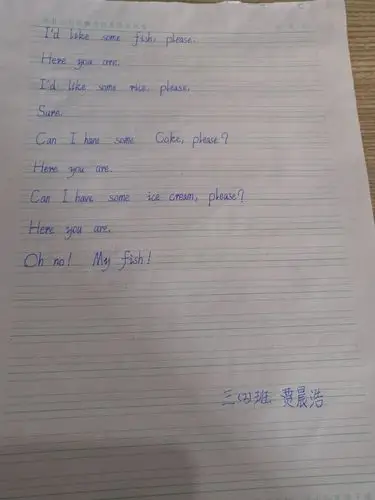 I'd like some fish, please.
Here you are.
I'd like some rice, please.
Sure.
Can I have some Coke, please?
Here you are.
Can I have some ice cream, please?
Here you are.
Oh no! My fish!
三(2)班 贾晨浩